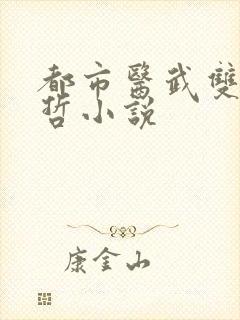 都市醫武雙
哲小説
康金山